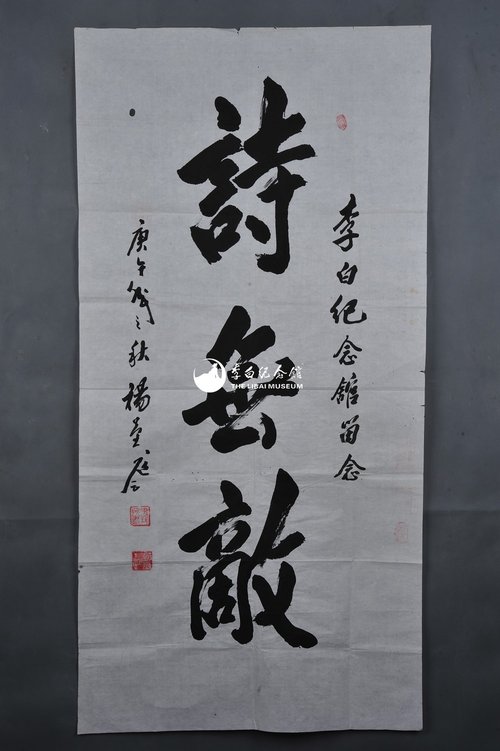 李白纪念館留念
詩無敵
庚午歲之秋楊
李白纪念馆
THE LIBAI MUSEUM